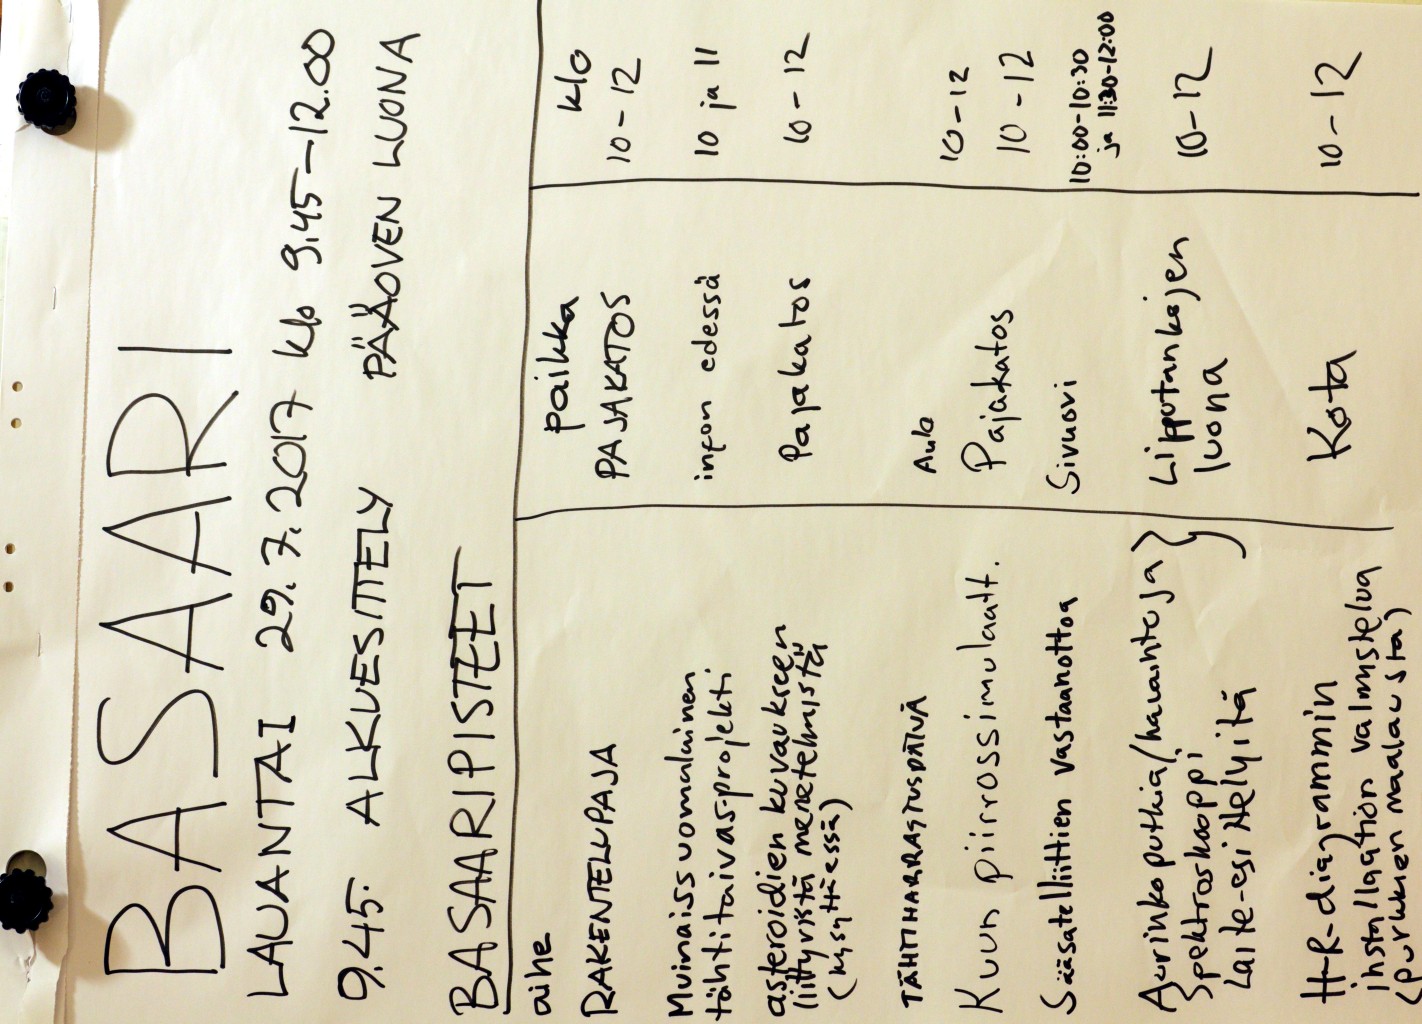 BASAARI
LAUANTAI 29.7.2017 klo 9.45-12.00
9.45. ALKUESITTELY PÄÄOVEN LUONA
BASAARIPISTEET
aihe paikka klo
RAKENTELUPAJA PAJAKATOS 10-12
Muinaissuomalainen
tähtitaivas-projekti infon edessä 10 ja 11
asteroidien kuvaukseen Pajakatos 10-12
liittyvistä menetelmistä
(kysyttäessä)
TÄHTIHARRASTUSPÄIVÄ Aula 10-12
Kuun piirrossimulaatt. Pajakatos 10-12
Sääsatelliittien vastaanottoa Sivuovi 10:00-10:30
ja 11:30-12:00
Aurinkoputkia/havaintoja Lipputankojen 10-12
Spektroskooppi luona
Laite-esittelyitä
H-R-diagrammin Kota 10-12
installaation valmistelua
(purkkien maalausta)